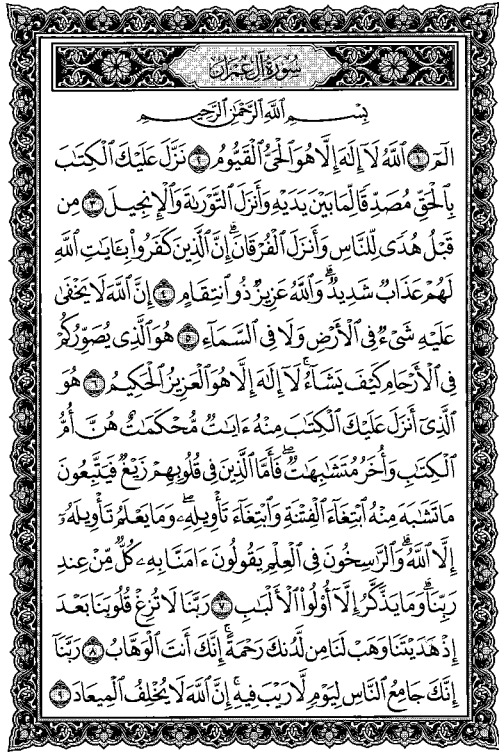 سُورَةُ آلِ عِمْرَانَ
بِسْمِ ٱللَّهِ ٱلرَّحْمَٰنِ ٱلرَّحِيمِ
الٓمٓ ١ ٱللَّهُ لَآ إِلَٰهَ إِلَّا هُوَ ٱلْحَىُّ ٱلْقَيُّومُ ٢ نَزَّلَ عَلَيْكَ ٱلْكِتَٰبَ
بِٱلْحَقِّ مُصَدِّقًا لِّمَا بَيْنَ يَدَيْهِ وَأَنزَلَ ٱلتَّوْرَىٰةَ وَٱلْإِنجِيلَ ٣ مِن
قَبْلُ هُدًى لِّلنَّاسِ وَأَنزَلَ ٱلْفُرْقَانَ ۗ إِنَّ ٱلَّذِينَ كَفَرُوا۟ بِـَٔايَٰتِ ٱللَّهِ
لَهُمْ عَذَابٌ شَدِيدٌ ۗ وَٱللَّهُ عَزِيزٌ ذُو ٱنتِقَامٍ ٤ إِنَّ ٱللَّهَ لَا يَخْفَىٰ
عَلَيْهِ شَىْءٌ فِى ٱلْأَرْضِ وَلَا فِى ٱلسَّمَآءِ ٥ هُوَ ٱلَّذِى يُصَوِّرُكُمْ
فِى ٱلْأَرْحَامِ كَيْفَ يَشَآءُ ۚ لَآ إِلَٰهَ إِلَّا هُوَ ٱلْعَزِيزُ ٱلْحَكِيمُ ٦ هُوَ
ٱلَّذِىٓ أَنزَلَ عَلَيْكَ ٱلْكِتَٰبَ مِنْهُ ءَايَٰتٌ مُّحْكَمَٰتٌ هُنَّ أُمُّ
ٱلْكِتَٰبِ وَأُخَرُ مُتَشَٰبِهَٰتٌ ۖ فَأَمَّا ٱلَّذِينَ فِى قُلُوبِهِمْ زَيْغٌ فَيَتَّبِعُونَ
مَا تَشَٰبَهَ مِنْهُ ٱبْتِغَآءَ ٱلْفِتْنَةِ وَٱبْتِغَآءَ تَأْوِيلِهِۦ ۗ وَمَا يَعْلَمُ تَأْوِيلَهُۥٓ
إِلَّا ٱللَّهُ ۗ وَٱلرَّٰسِخُونَ فِى ٱلْعِلْمِ يَقُولُونَ ءَامَنَّا بِهِۦ كُلٌّ مِّنْ عِندِ
رَبِّنَا ۗ وَمَا يَذَّكَّرُ إِلَّآ أُو۟لُوا۟ ٱلْأَلْبَٰبِ ٧ رَبَّنَا لَا تُزِغْ قُلُوبَنَا بَعْدَ
إِذْ هَدَيْتَنَا وَهَبْ لَنَا مِن لَّدُنكَ رَحْمَةً ۚ إِنَّكَ أَنتَ ٱلْوَهَّابُ ٨ رَبَّنَآ
إِنَّكَ جَامِعُ ٱلنَّاسِ لِيَوْمٍ لَّا رَيْبَ فِيهِ ۚ إِنَّ ٱللَّهَ لَا يُخْلِفُ ٱلْمِيعَادَ ٩